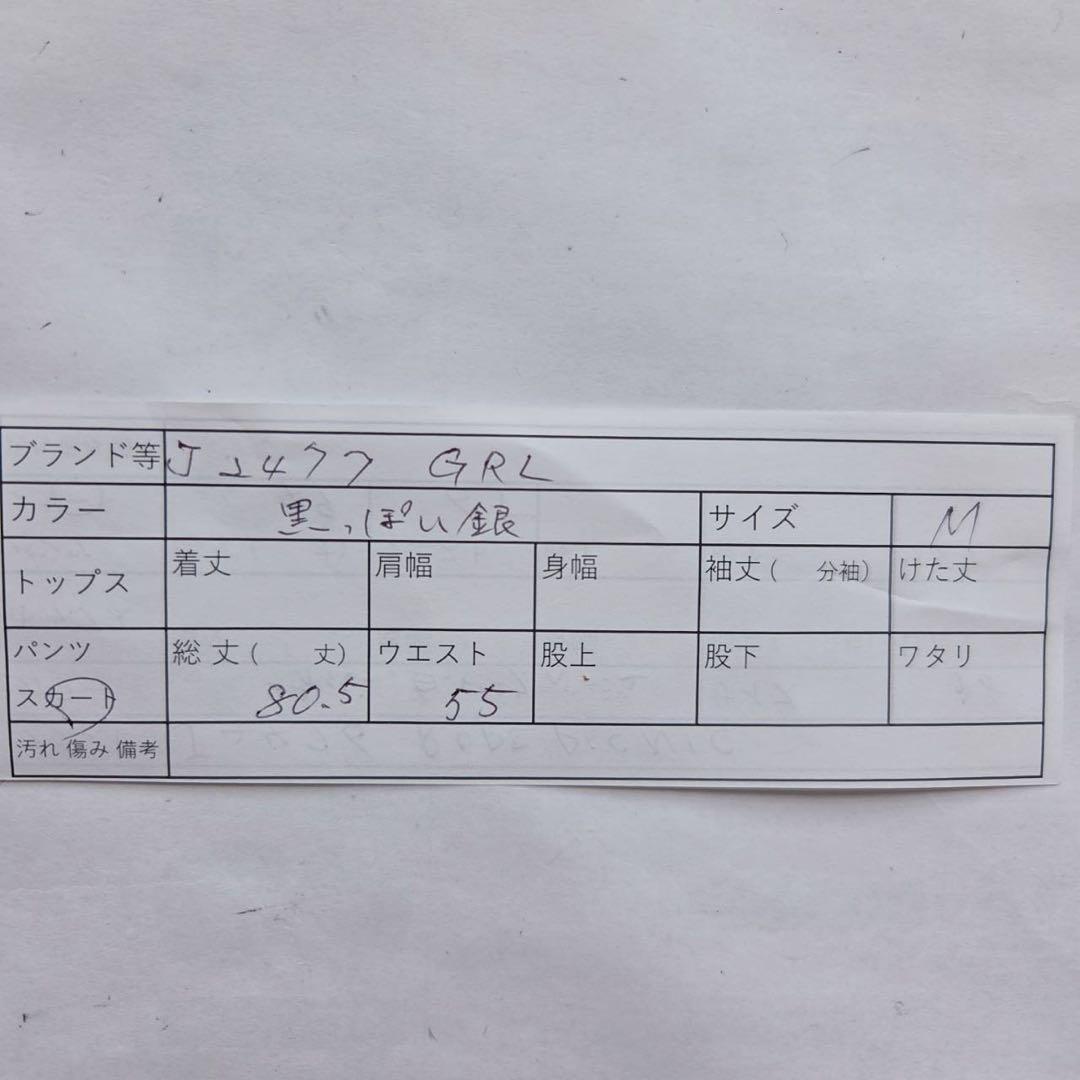 ブランド等 J2477 GRL
カラー 黒っぽい銀 サイズ M
トップス 着丈 肩幅 身幅 袖丈( 分袖) けた丈
パンツ 総丈( 丈) ウエスト 股上 股下 ワタリ
スカート 80.5 55
汚れ 傷み 備考